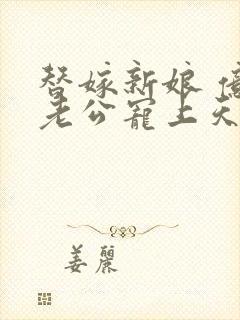 替嫁新娘 億
老公寵上天
姜麗